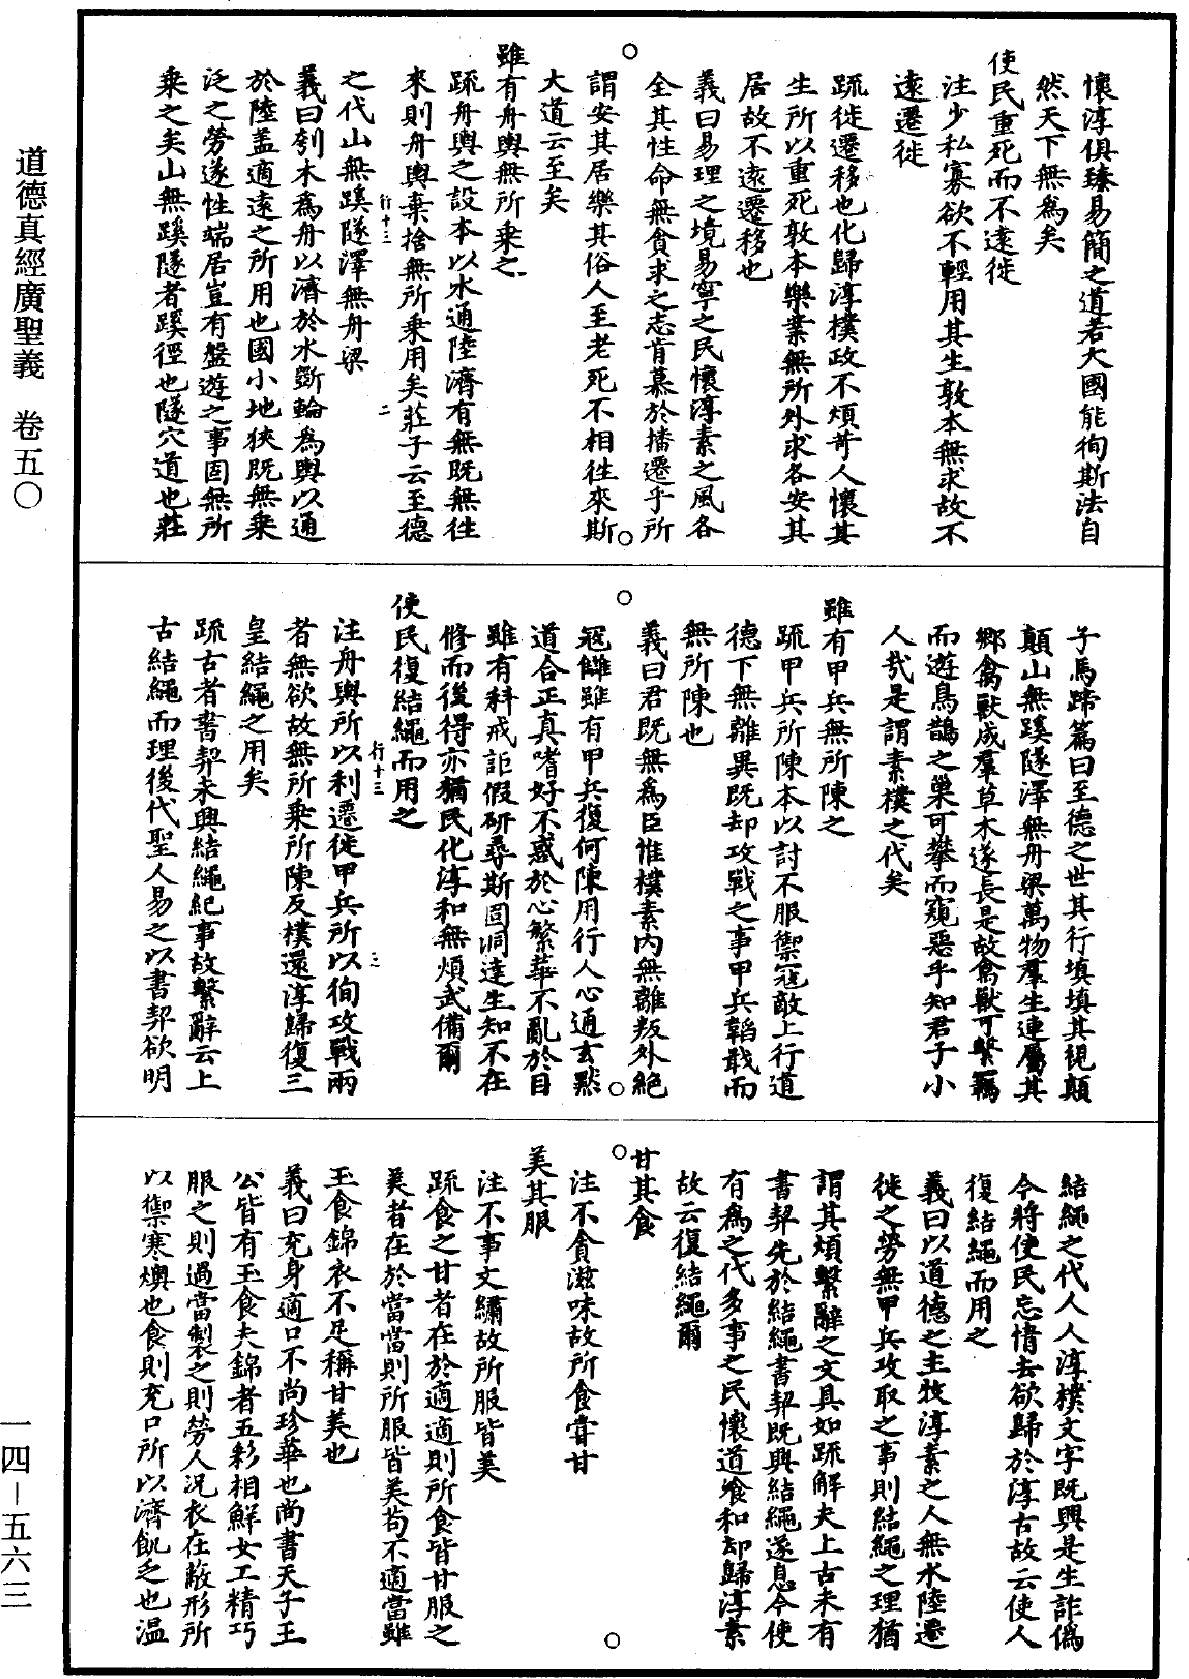 懷淳俱臻易簡之道若大國能徇斯法自
然天下無為矣
使民重死而不遠徙
注少私寡欲不輕用其生敦本無求故不
遠遷徙
疏徙遷移也化歸淳樸政不煩苛人懷其
生所以重死敦本樂業無所外求各安其
居故不遠遷移也
義曰易理之境易寧之民懷淳素之風各
全其性命無貪求之志肯慕於播遷乎所
謂安其居樂其俗人至老死不相往來斯
大道云至矣
雖有舟輿無所乘之
疏舟輿之設本以水通陸濟有無既無往
來則舟輿棄捨無所乘用矣莊子云至德
行十三 二
之代山無蹊隧澤無舟梁
義曰刳木為舟以濟於水斲輪為輿以通
於陸蓋適遠之所用也國小地狹既無乘
泛之勞遂性端居豈有盤遊之事固無所
乘之矣山無蹊隧者蹊徑也隧穴道也莊
子馬蹄篇曰至德之世其行填填其視顛
顛山無蹊隧澤無舟梁萬物羣生連屬其
鄉禽獸成羣草木遂長是故禽獸可繫羈
而遊鳥鵲之巢可攀而窺惡乎知君子小
人哉是謂素樸之代矣
雖有甲兵無所陳之
疏甲兵所陳本以討不服禦寇敵上行道
德下無離異既却攻戰之事甲兵韜戢而
無所陳也
義曰君既無為臣惟樸素內無離叛外絕
寇讎雖有甲兵復何陳用行人心通玄默
道合正真嗜好不惑於心繁華不亂於目
雖有科戒詎假研尋斯固洞達生知不在
修而後得亦猶民化淳和無煩武備爾
使民復結繩而用之
行十三 二
注舟輿所以利遷徙甲兵所以徇攻戰兩
者無欲故無所乘所陳反樸還淳歸復三
皇結繩之用矣
疏古者書契未興結繩紀事故繫辭云上
古結繩而理後代聖人易之以書契欲明
結繩之代人人淳樸文字既興是生詐偽
今將使民忘情去欲歸於淳古故云使人
復結繩而用之
義曰以道德之主牧淳素之人無水陸遷
徙之勞無甲兵攻取之事則結繩之理猶
謂其煩繫辭之文具如疏解夫上古未有
書契先於結繩書契既興結繩遂息今使
有為之代多事之民懷道飡和却歸淳素
故云復結繩爾
甘其食
注不貪滋味故所食常甘
美其服
注不事文繡故所服皆美
疏食之甘者在於適適則所食皆甘服之
美者在於當當則所服皆美苟不適當雖
玉食錦衣不足稱甘美也
義曰充身適口不尚珍華也尚書天子王
公皆有玉食夫錦者五彩相鮮女工精巧
服之則過當製之則勞人況衣在蔽形所
以禦寒燠也食則充口所以濟飢乏也溫
道德真經廣聖義　卷五〇
一四－五六三